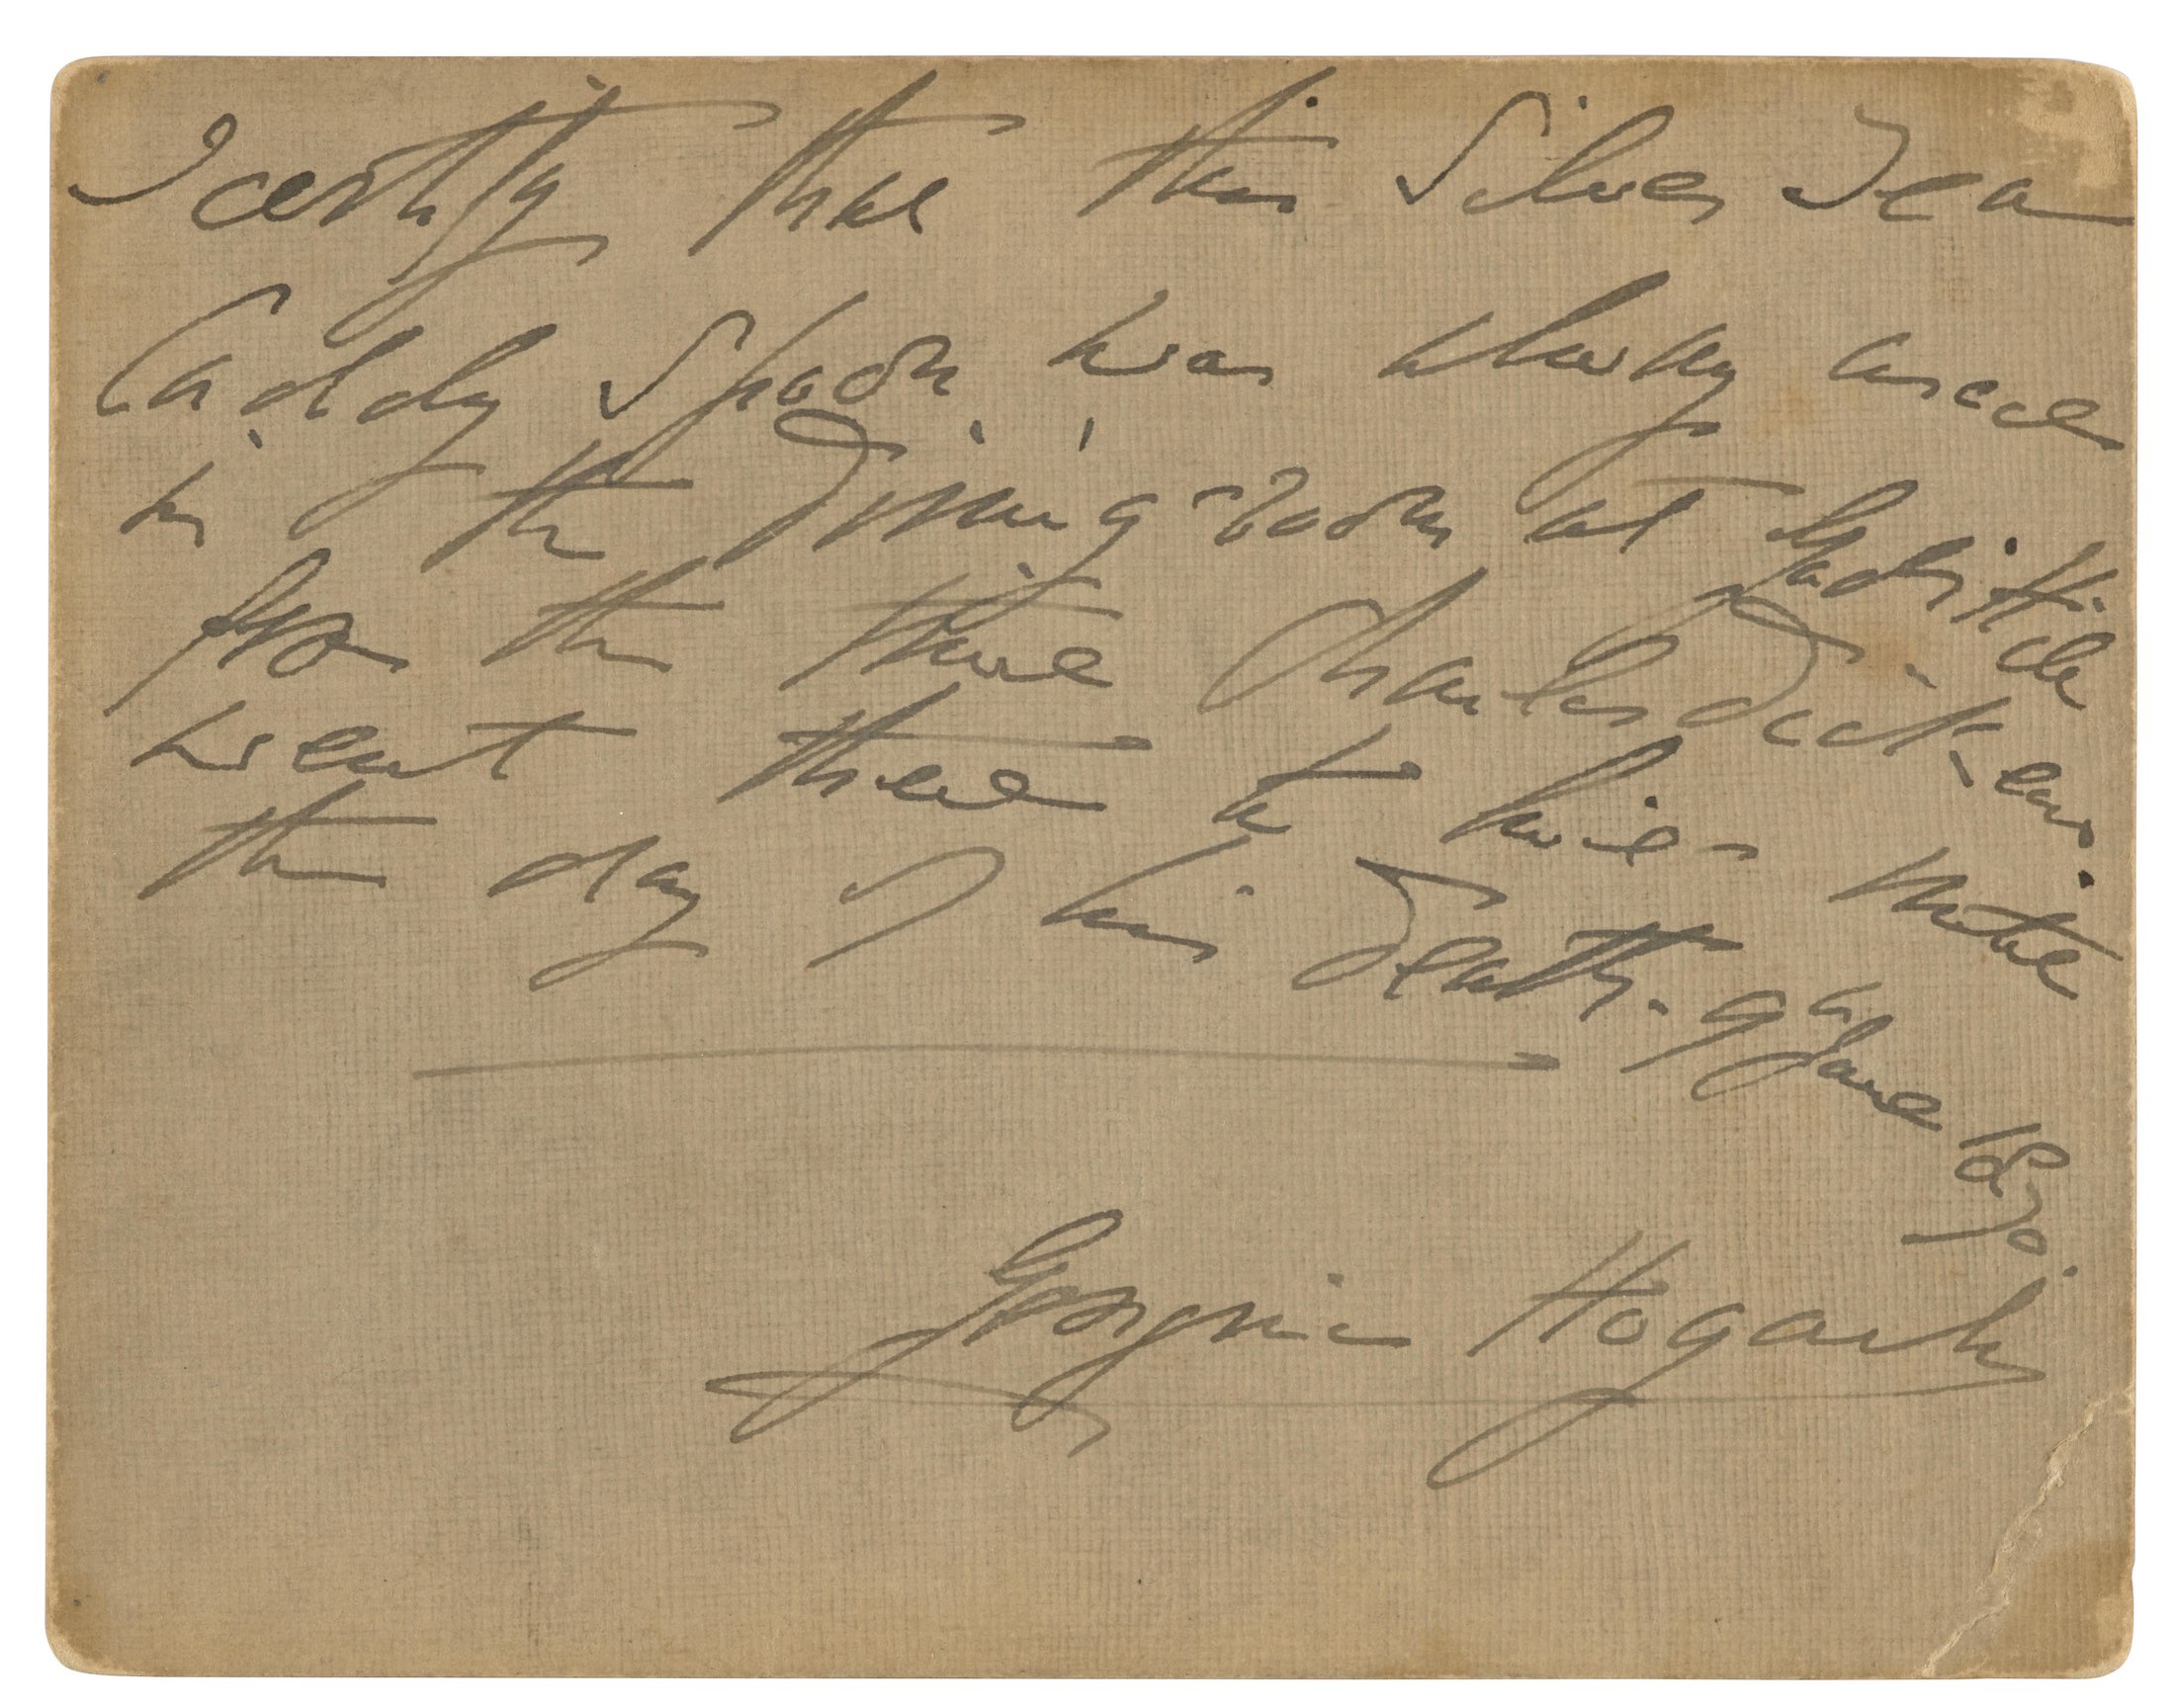 I certify that this Silver Tea
Caddy Spoon was always used
in the Dining-room at Gadshill
from the time Charles Dickens.
went there to live - until
the day of his Death. 9th June 1870.
Georgina Hogarth